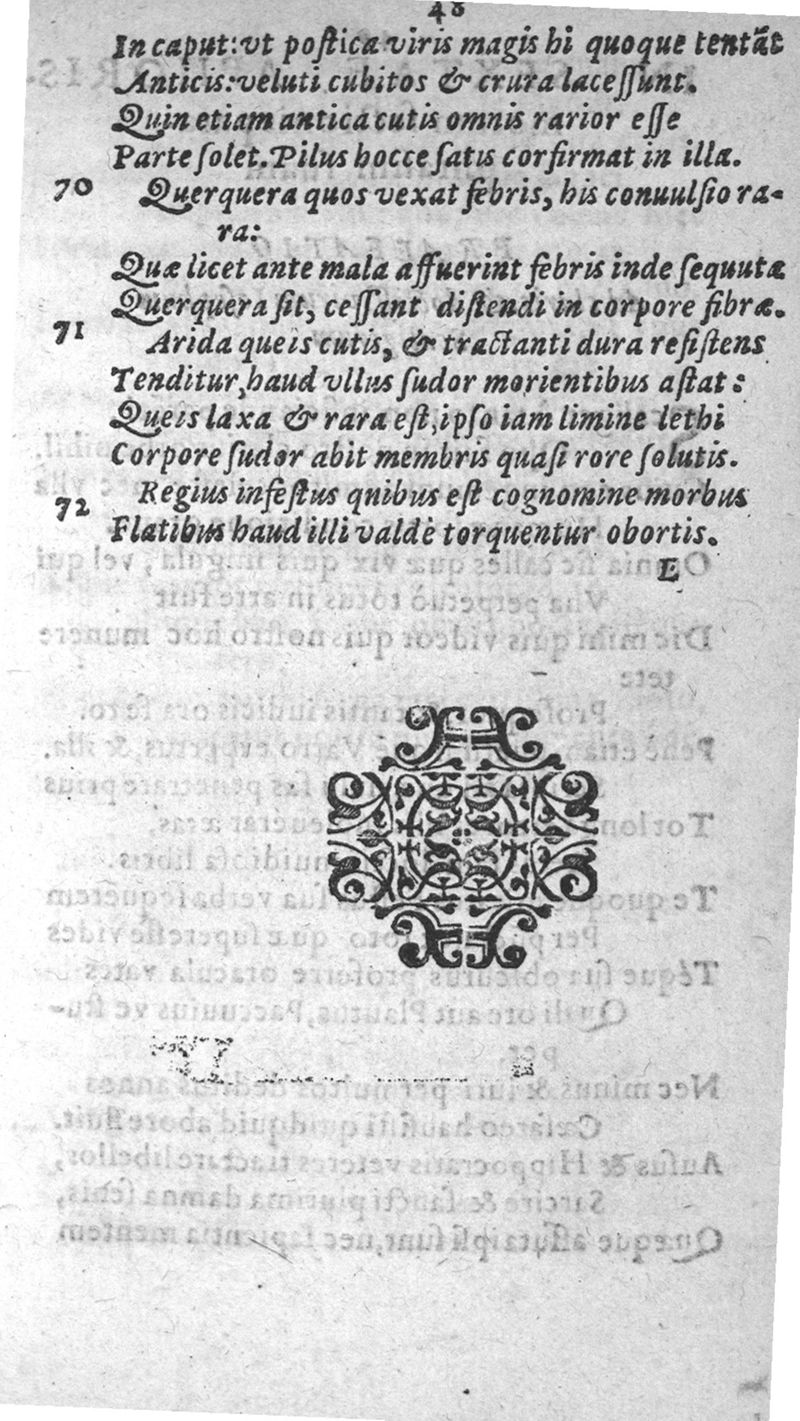 48
In caput: vt postica viris magis hi quoque tentāt
Anticis: veluti cubitos & crura lacessunt.
Quin etiam antica cutis omnis rarior esse
Parte solet. Pilus hocce satis corfirmat in illa.
70 Querquera quos vexat febris, his conuulsio ra-
ra:
Quæ licet ante mala affuerint febris inde sequuta
Querquera sit, cessant distendi in corpore fibræ.
71 Arida queis cutis, & tractanti dura resistens
Tenditur, haud vllus sudor morientibus astat:
Queis laxa & rara est, ipso iam limine lethi
Corpore sudor abit membris quasi rore solutis.
72 Regius infestus qnibus est cognomine morbus
Flatibus haud illi valdè torquentur obortis.
E